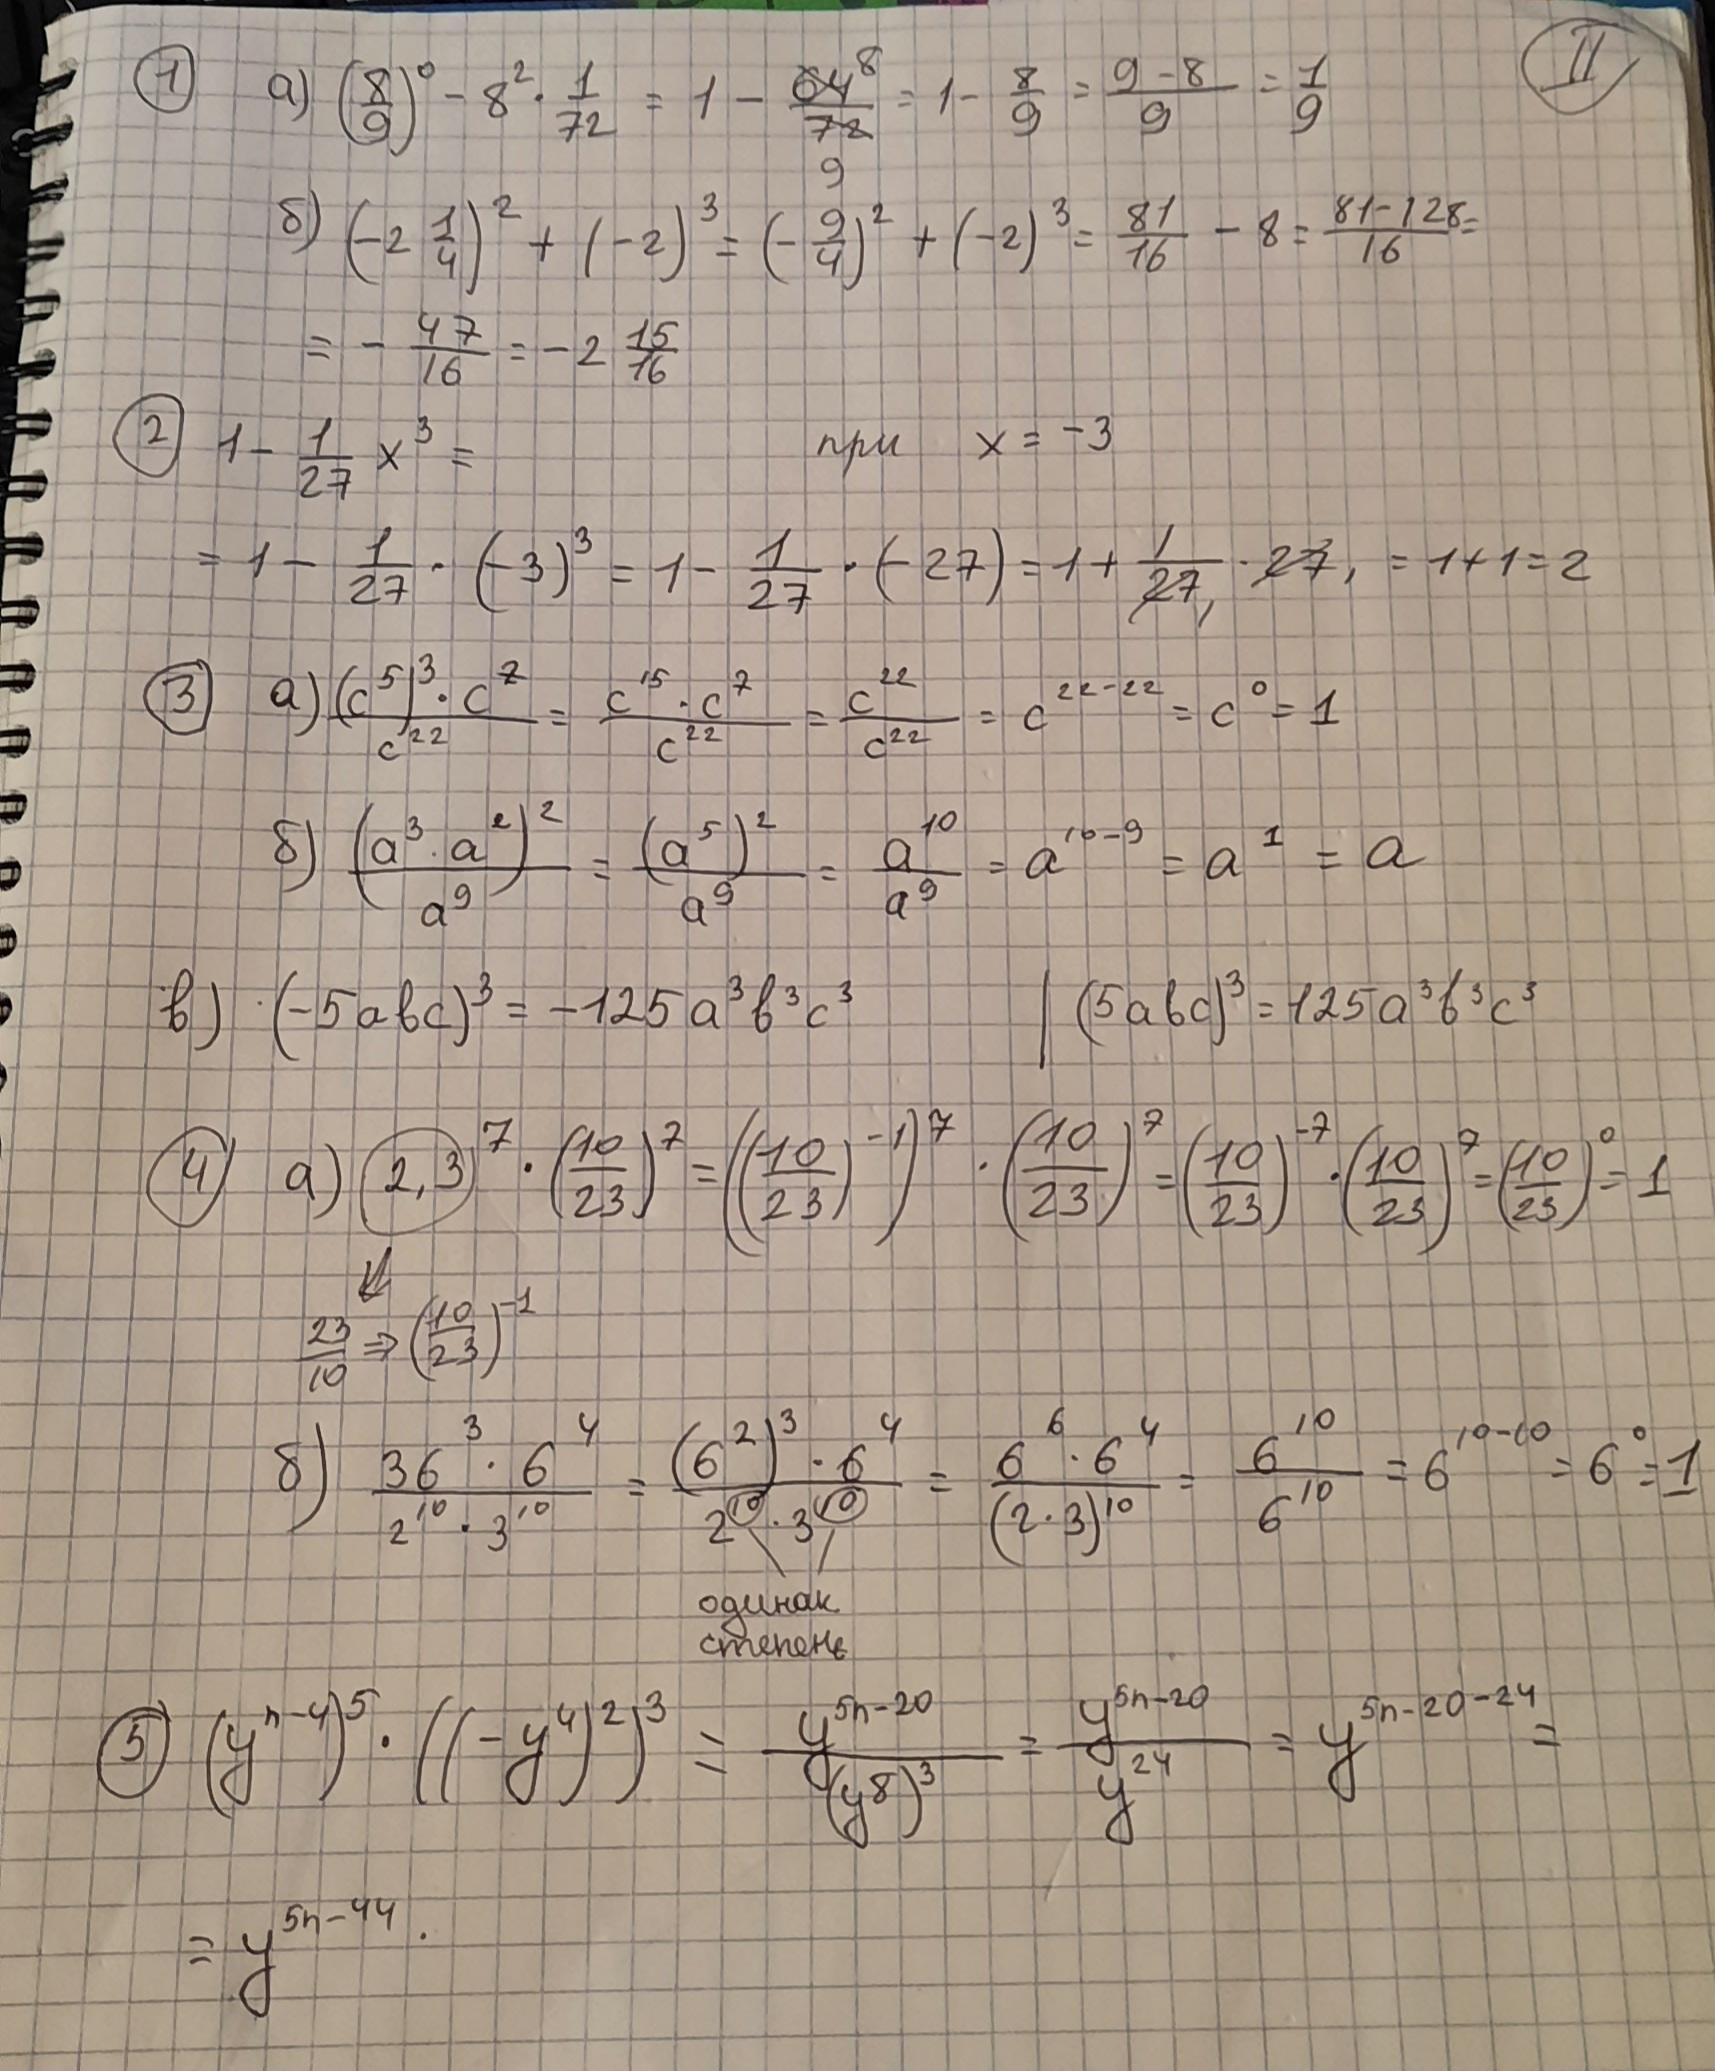 II
① а) (8/9)⁰ - 8² · 1/72 = 1 - 64⁸/72₉ = 1 - 8/9 = (9-8)/9 = 1/9
б) (-2 1/4)² + (-2)³ = (-9/4)² + (-2)³ = 81/16 - 8 = (81-128)/16 =
= - 47/16 = -2 15/16
② 1 - 1/27 x³ = при x = -3
= 1 - 1/27 · (-3)³ = 1 - 1/27 · (-27) = 1 + 1/27₁ · 27₁ = 1+1=2
③ а) ((c⁵)³ · c⁷)/c²² = (c¹⁵ · c⁷)/c²² = c²²/c²² = c²²⁻²² = c⁰ = 1
б) (a³ · a²)²/a⁹ = (a⁵)²/a⁹ = a¹⁰/a⁹ = a¹⁰⁻⁹ = a¹ = a
в) (-5abc)³ = -125a³b³c³ | (5abc)³ = 125a³b³c³
④ а) 2,3⁷ · (10/23)⁷ = ((10/23)⁻¹)⁷ · (10/23)⁷ = (10/23)⁻⁷ · (10/23)⁷ = (10/23)⁰ = 1
23/10 ⇒ (10/23)⁻¹
б) (36³ · 6⁴)/(2¹⁰ · 3¹⁰) = ((6²)³ · 6⁴)/(2¹⁰ · 3¹⁰) = (6⁶ · 6⁴)/(2·3)¹⁰ = 6¹⁰/6¹⁰ = 6¹⁰⁻¹⁰ = 6⁰ = 1
одинак
степень
⑤ (yⁿ⁻⁴)⁵ · ((-y⁴)²)³ = y⁵ⁿ⁻²⁰/(y⁸)³ = y⁵ⁿ⁻²⁰/y²⁴ = y⁵ⁿ⁻²⁰⁻²⁴ =
= y⁵ⁿ⁻⁴⁴.